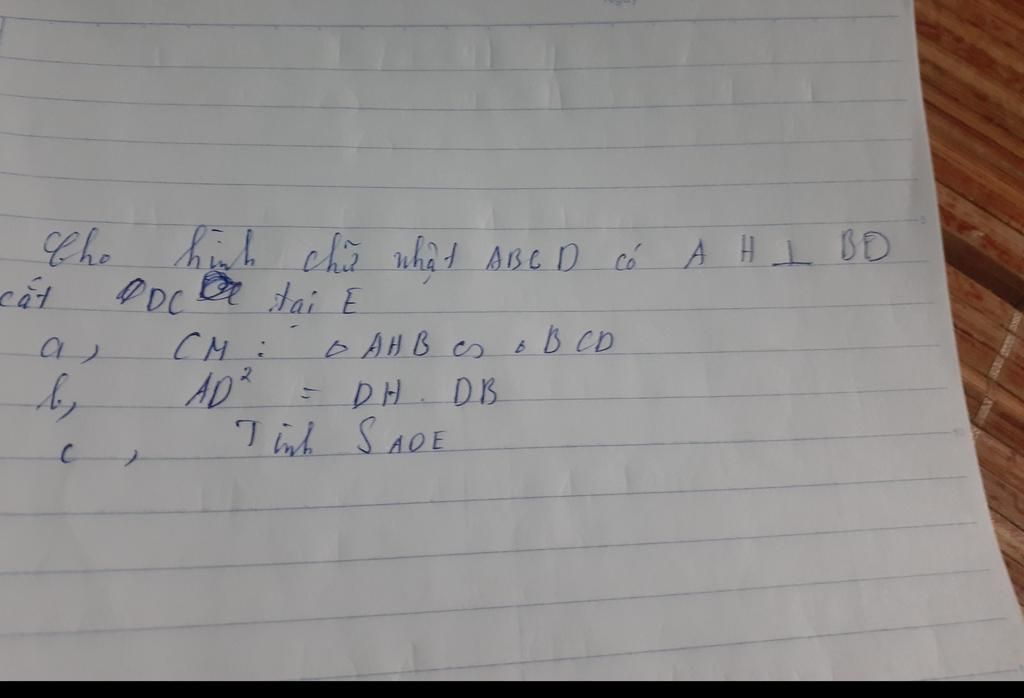 Cho hình chữ nhật ABCD có AH ⊥ BD
cắt DC tại E
a, CM: △AHB ∽ △BCD
b, AD² = DH . DB
c, Tính S ADE